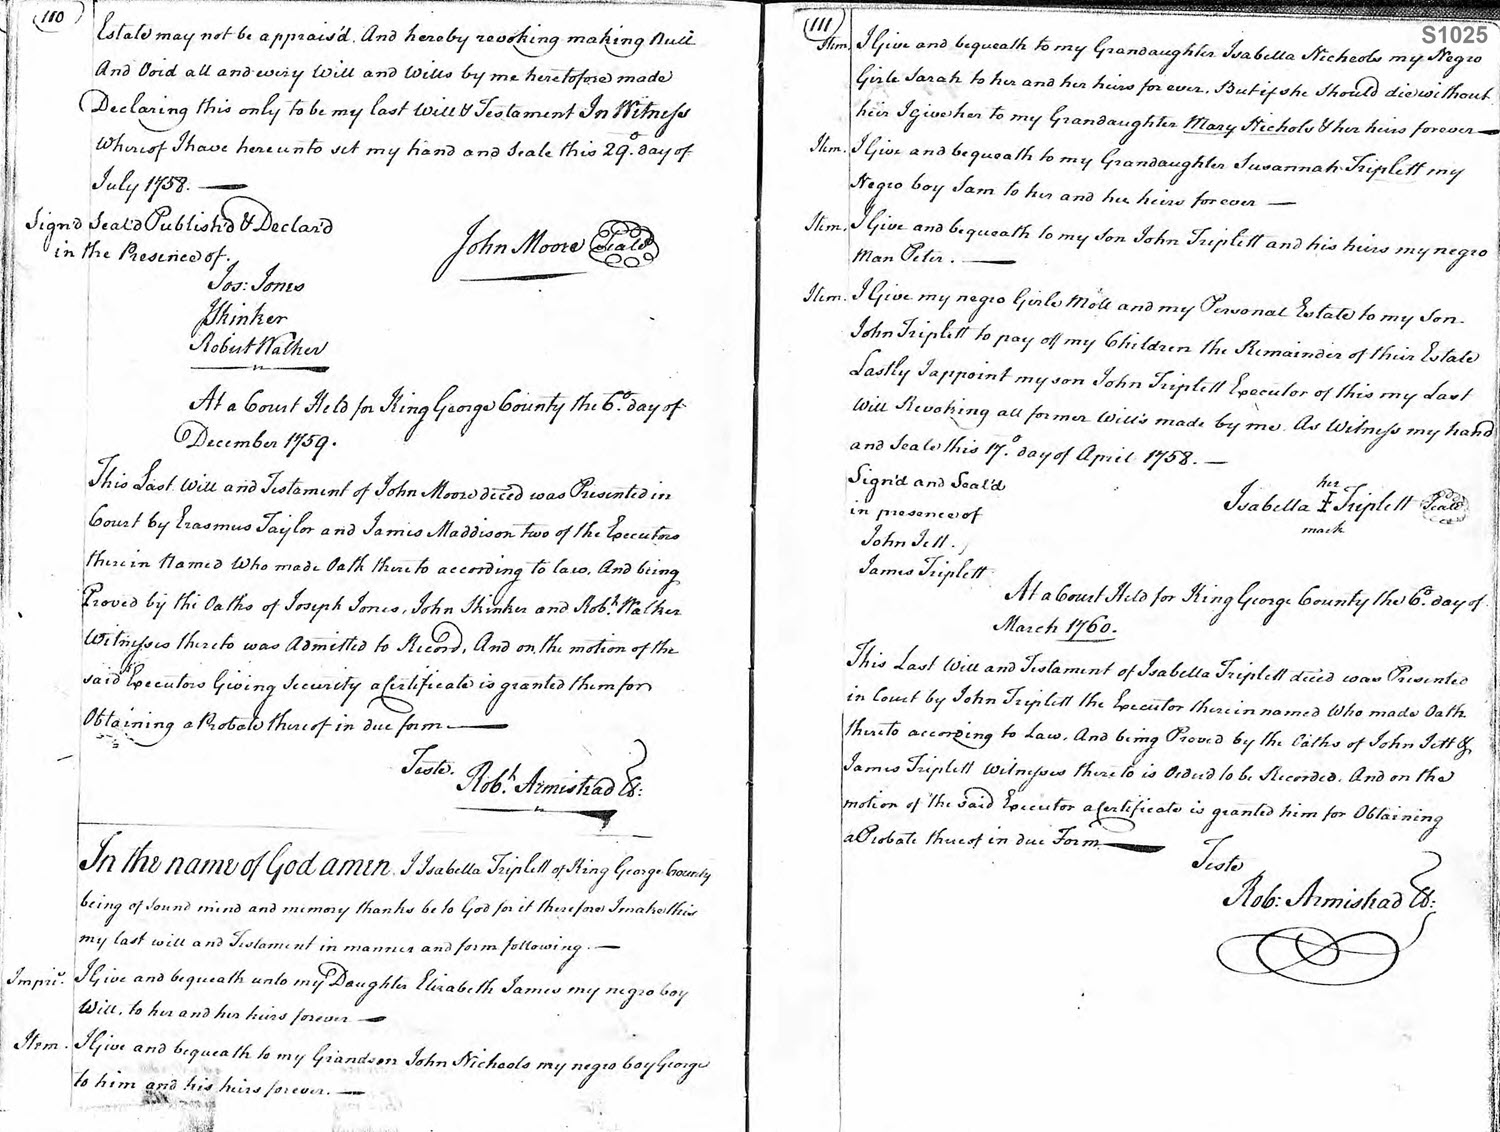 110
Estate may not be apprais'd. And hereby revoking making Null
And Void all and every Will and Wills by me heretofore made
Declaring this only to be my last Will & Testament In Witness
Whereof I have hereunto set my hand and Seale this 29.o day of
July 1758.
Sign'd Seal'd Publish'd & Declar'd
in the Presence of.
John Moore Seal'd
Jos: Jones
J Skinker
Robert Walker
At a Court Held for King George County the 6.o day of
December 1759.
This Last Will and Testament of John Moore dec'ed was Presented in
Court by Erasmus Taylor and James Maddison two of the Executors
therein Named Who made Oath thereto according to law. And being
Proved by the Oaths of Joseph Jones, John Skinker and Rob.t Walker
Witnesses thereto was Admitted to Record, And on the motion of the
said Executors Giving Security a Certificate is granted them for
Obtaining a Probate thereof in due form
Teste.
Rob.t Armistead
In the name of God amen. I Isabella Triplett of King George County
being of sound mind and memory thanks be to God for it therefore I make this
my last will and Testament in manner and form following.
Impri.s I Give and bequeath unto my Daughter Elizabeth James my negro boy
Will, to her and her heirs forever
Item. I Give and bequeath to my Grandson John Nicheols my negro boy George
to him and his heirs forever.
111
S1025
Item. I Give and bequeath to my Grandaughter Isabella Nicheols my Negro
Girle Sarah to her and her heirs for ever. But if she should die without
heir I give her to my Grandaughter Mary Nichols & her heirs forever
Item. I Give and bequeath to my Grandaughter Susannah Triplett my
Negro boy Sam to her and her heirs forever
Item. I Give and bequeath to my Son John Triplett and his heirs my negro
Man Peter.
Item. I Give my negro Girle Moll and my Personal Estate to my Son
John Triplett to pay off my Children the Remainder of their Estate
Lastly I appoint my son John Triplett Executor of this my Last
Will Revoking all former Will's made by me As Witness my hand
and Seale this 17.o day of April 1758.
Sign'd and Seal'd
in presence of
her
Isabella I Triplett Seal'd
mark
John Jett.
James Triplett
At a Court Held for King George County the 6.o day of
March 1760.
This Last Will and Testament of Isabella Triplett dec'ed was Presented
in Court by John Triplett the Executor therein named Who made Oath
thereto according to Law. And being Proved by the Oaths of John Jett &
James Triplett Witnesses thereto is Ordred to be Recorded. And on the
motion of the said Executor a Certificate is granted him for Obtaining
a Probate thereof in due Form
Teste
Rob: Armistead